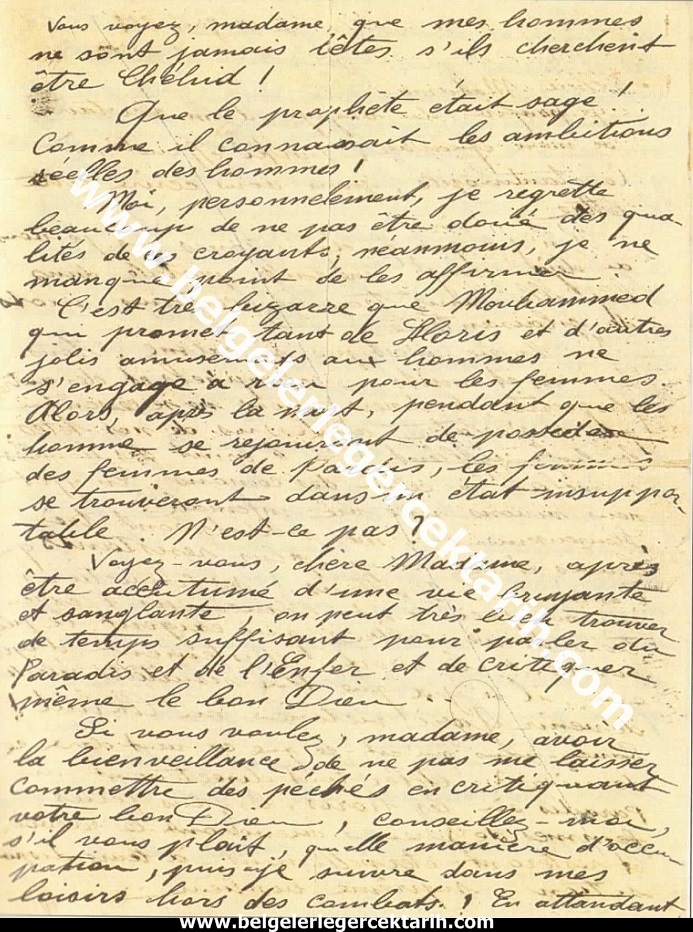 Vous voyez, madame, que mes hommes
ne sont jamais bêtes s'ils cherchent
être Chéhid !
Que le prophète était sage !
Comme il connaissait les ambitions
réelles des hommes !
Moi, personnelement, je regrette
beaucoup de ne pas être doué des qua-
lités de ces croyants, néanmoins, je ne
manque point de les affirmer
C'est très bizarre que Mouhammed
qui promet tant de Hloris et d'autres
jolis amusements aux hommes ne
s'engage à rien pour les femmes.
Alors, après la mort, pendant que les
homme se rejouiront de posséder
des femmes de Paradis, les femmes
se trouveront dans un état insuppor-
table. N'est-ce pas ?
Voyez-vous, chère Madame, après
être accutumé d'une vie bruyante
et sanglante, on peut très bien trouver
de temps suffisant pour parler du
Paradis et de l'Enfer et de critiquer
même le bon Dieu.
Si vous voulez, madame, avoir
la bienveillance de ne pas me laisser
commettre des pechés en critiquant
votre bon Dieu, conseillez-moi,
s'il vous plait, quelle manière d'occu-
pation, puis-je suivre dans mes
loisirs hors des combats. ! En attendant
www.belgelerlegercektarih.com
www.belgelerlegercektarih.com